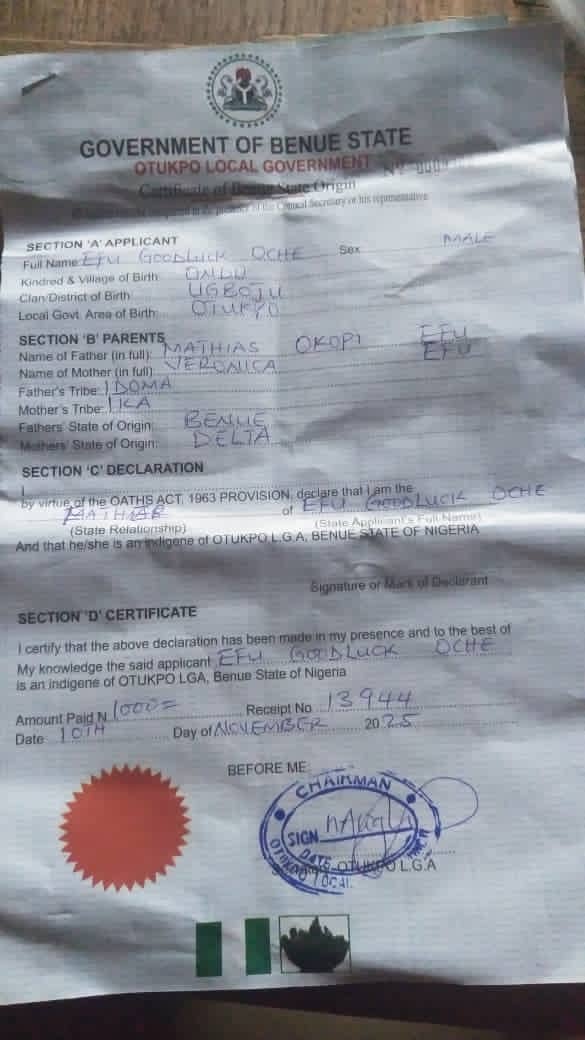 GOVERNMENT OF BENUE STATE
OTUKPO LOCAL GOVERNMENT
Certificate of Benue State Origin
of the Council Secretary or his representative
SECTION 'A' APPLICANT
Full Name EFU GOODLUCK OCHE Sex MALE
Kindred & Village of Birth
Clan/District of Birth UGBOJU
Local Govt. Area of Birth: OTUKPO
SECTION 'B' PARENTS
Name of Father (in full): MATHIAS OKOPI EFU
Name of Mother (in full): VERONICA EFU
Father's Tribe: IDOMA
Mother's Tribe: IKA
Fathers' State of Origin: BENUE
Mothers' State of Origin: DELTA
SECTION 'C' DECLARATION
I
by virtue of the OATHS ACT, 1963 PROVISION, declare that I am the
of EFU GOODLUCK OCHE
(State Relationship) (State Applicant's Full Name)
And that he/she is an indigene of OTUKPO L.G.A, BENUE STATE OF NIGERIA
Signature or Mark of Declarant
SECTION 'D' CERTIFICATE
I certify that the above declaration has been made in my presence and to the best of
My knowledge the said applicant EFU GOODLUCK OCHE
is an indigene of OTUKPO LGA, Benue State of Nigeria
Amount Paid N 1000= Receipt No 13944
Date 10TH Day of NOVEMBER 2025
BEFORE ME:
CHAIRMAN
SIGN
DATE
OTUKPO L.G.A
OTUKPO LOCAL